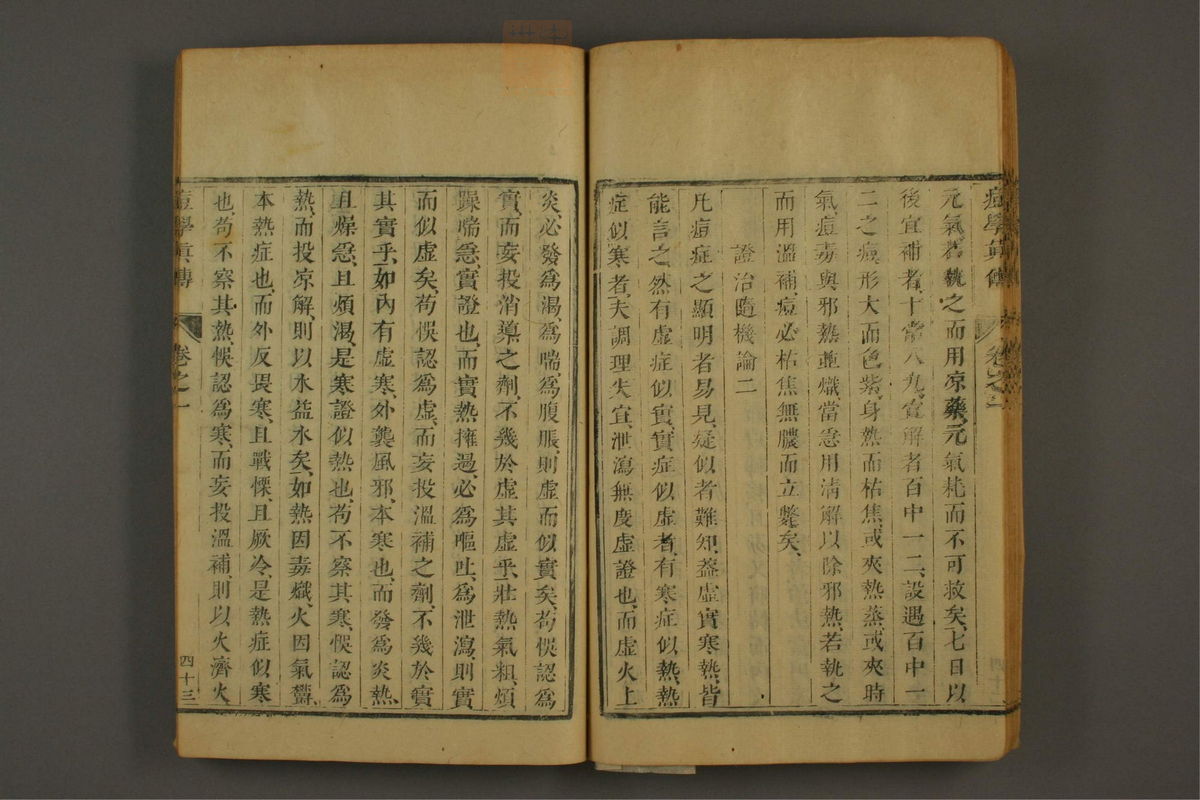 痘學眞傳 卷之二
元氣若執之而用凉藥、元氣耗而不可救矣、七日以
後宜補者、十常八九、宜解者百中一二、設遇百中一
二之痘、形大而色紫、身熱而枯焦、或夾熱蒸、或夾時
氣、痘毒與邪熱並熾、當急用清解以除邪熱、若執之
而用溫補、痘必枯焦無膿而立斃矣、
證治隨機論二
凡痘症之顯明者易見、疑似者難知、蓋虛實寒熱、皆
能言之、然有虛症似實、實症似虛者、有寒症似熱、熱
症似寒者、夫調理失宜、泄瀉無度虛證也、而虛火上
炎、必發爲渴、爲喘、爲腹脹、則虛而似實矣、苟悞認爲
實、而妄投消導之劑、不幾於虛其虛乎、壯熱氣粗、煩
躁喘急、實證也、而實熱擁遏、必爲嘔吐、爲泄瀉、則實
而似虛矣、苟悞認爲虛、而妄投溫補之劑、不幾於實
其實乎、如內有虛寒、外襲風邪、本寒也、而發爲炎熱
且燥急、且煩渴、是寒證似熱也、苟不察其寒、悞認爲
熱、而投凉解、則以水益水矣、如熱因毒熾、火因氣鬱、
本熱症也、而外反畏寒、且戰慄、且厥冷、是熱症似寒
也、苟不察其熱、悞認爲寒、而妄投溫補、則以火濟火
痘學眞傳 卷之二 四十三